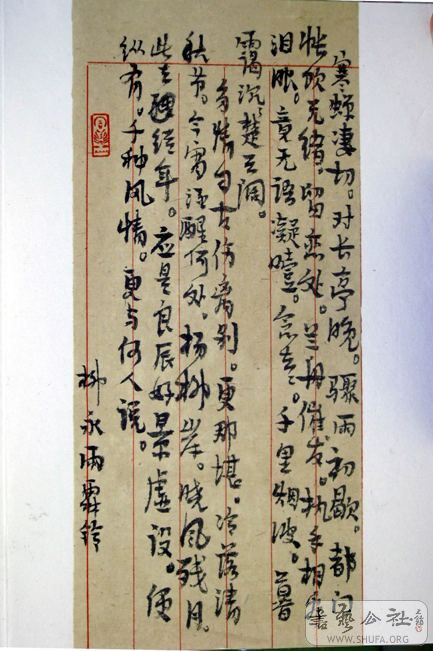 寒蝉凄切。对长亭晚。骤雨初歇。都门
怅饮无绪。留恋处。兰舟催发。执手相看
泪眼。竟无语凝噎。念去去。千里烟波。暮
霭沉楚天阔。
多情自古伤离别。更那堪。冷落清
秋节。今宵酒醒何处。杨柳岸。晓风残月。
此去经年。应是良辰好景虚设。便
纵有。千种风情。更与何人说。
柳永雨霖铃
書藝公社
WWW.SHUFA.ORG